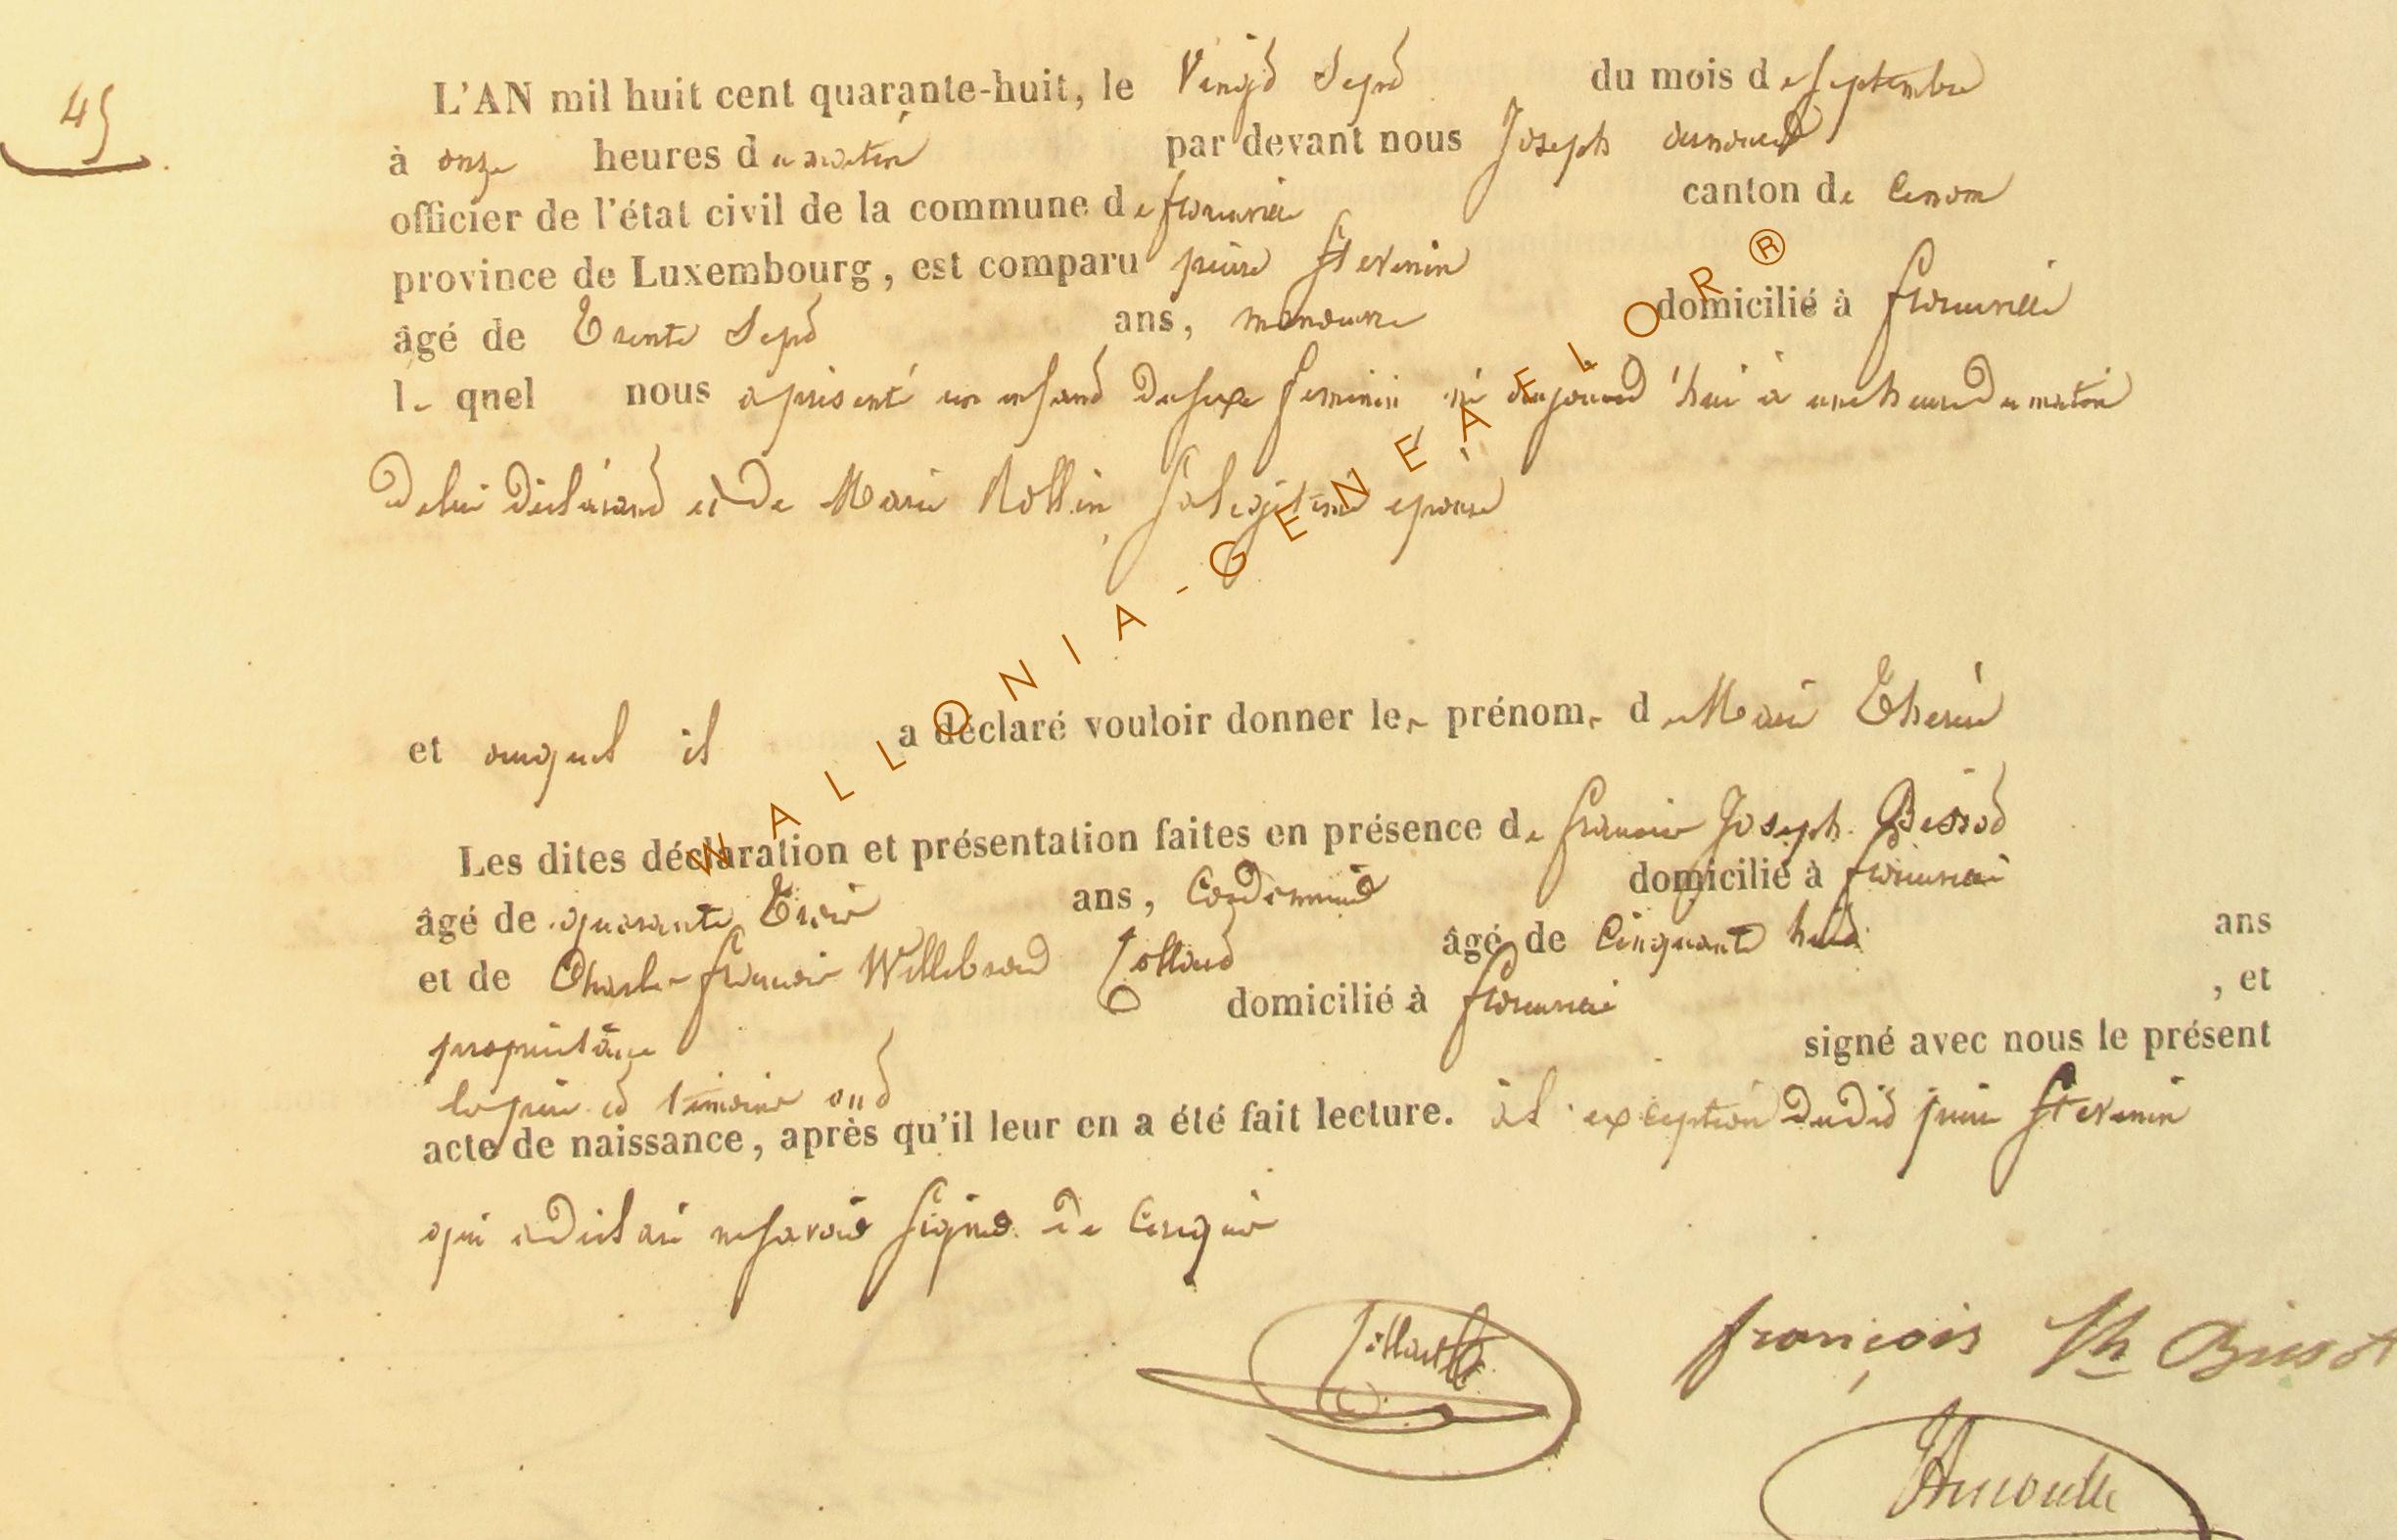 45
L'AN mil huit cent quarante-huit, le Vingt Sept du mois de septembre
à onze heures du matin par devant nous Joseph
officier de l'état civil de la commune de florenville canton de
province de Luxembourg, est comparu pierre Stevenin
âgé de Trente Sept ans, manoeuvre domicilié à florenville
le quel nous a présenté un enfant du sexe feminin né aujourd'hui à une heure du matin
de lui déclarant et de Marie Rollin sa legitime epouse
et auquel il a déclaré vouloir donner les prénoms de Marie Therese
Les dites déclaration et présentation faites en présence de francois Joseph Bissot
âgé de quarante Trois ans, Cordonnier domicilié à florenville
et de Charles francois Willebrord âgé de Cinquante huit ans
propriétaire domicilié à florenville , et
le pere et temoins ont signé avec nous le présent
acte de naissance, après qu'il leur en a été fait lecture. à l'exception dudit pierre Stevenin
qui a déclaré ne savoir signer de Cinquis
françois Jh Bissot
WALLONIA-GENEALOR ®